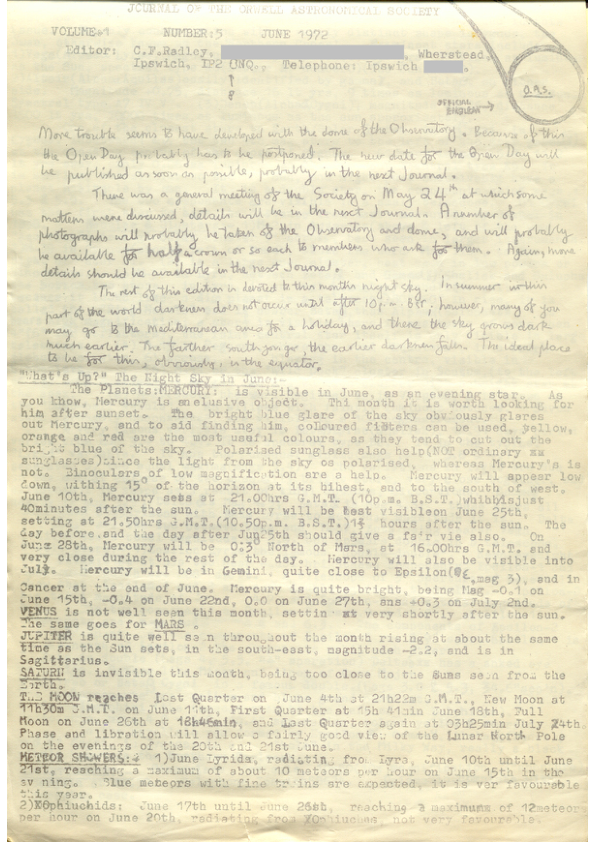 JOURNAL OF THE ORWELL ASTRONOMICAL SOCIETY
VOLUME:1 NUMBER:5 JUNE 1972
Editor: C.F.Radley, Wherstead,
Ipswich, IP2 Telephone: Ipswich
O.A.S.
More trouble seems to have developed with the dome of the Observatory. Because of this
the Open Day probably has to be postponed. The new date for the Open Day will
be published as soon as posible, probably in the next Journal.
There was a general meeting of the Society on May 24th at which some
matters were discussed, details will be in the next Journal. A number of
photographs will probably be taken of the Observatory and dome, and will probably
be available for half a crown or so each to members who ask for them. Again, more
details should be available in the next Journal.
The rest of this edition is devoted to this months night sky. In summer in this
part of the world darkness does not occur until after 10p.m. BST; however, many of you
may go to the mediterranean area for a holiday, and there the sky grows dark
much earlier. The farther south you go, the earlier darkness falls. The ideal place
to be for this, obviously, is the equator.
"What's Up?" The Night Sky in June:-
The Planets:MERCURY: is visible in June, as an evening star. As
you know, Mercury is an elusive object. Thi month it is worth looking for
him after sunset. The bright blue glare of the sky obviously glares
out Mercury, and to aid finding him, coloured filters can be used, yellow,
orange and red are the most useful colours, as they tend to cut out the
bright blue of the sky. Polarised sunglass also help(NOT ordinary xx
sunglasses)since the light from the sky os polarised, whereas Mercury's is
not. Binoculers of low magnification are a help. Mercury will appear low
down, withing 15° of the horizon at its bihest, and to the south of west.
June 10th, Mercury sets at 21.00hrs G.M.T. (10p.m. B.S.T.)whibhisjust
40minutes after the sun. Mercury will be best visibleon June 25th,
setting at 21.50hrs G.M.T.(10.50p.m. B.S.T.) hours after the sun. The
day before and the day after Jun25th should give a fair vie also. On
June 28th, Mercury will be 0.3° North of Mars, at 16.00hrs G.M.T. and
very close during the rest of the day. Mercury will also be visible into
July. Mercury will be in Gemini, quite close to Epsilon( mag 3), and in
Cancer at the end of June. Mercury is quite bright, being Mag -0.1 on
June 15th, -0.4 on June 22nd, 0.0 on June 27th, ans +0.3 on July 2nd.
VENUS is not well seen this month, settin at very shortly after the sun.
The same goes for MARS .
JUPITER is quite well seen throughout the month rising at about the same
time as the Sun sets, in the south-east, magnitude -2.2, and is in
Sagittarius.
SATURN is invisible this month, being too close to the Suns seen from the
Earth.
THE MOON reaches Last Quarter on June 4th at 21h22m G.M.T., New Moon at
11h30m G.M.T. on June 11th, First Quarter at 15h 41min June 18th, Full
Moon on June 26th at 18h46min, and Last Quarter again at 03h25min July
Phase and libration will allow a fairly good view of the Lunar North Pole
on the evenings of the 20th and 21st June.
METEOR SHOWERS: 1)June Lyrids, radiating from Lyra, June 10th until June
21st, reaching a maximum of about 10 meteors per hour on June 15th in the
ev ning. Blue meteors with fine trains are expected, it is ver favourable
this year.
June 17th until June 26st, reaching a maximums of 12meteor
per hour on June 20th, radiating from not very favourable.